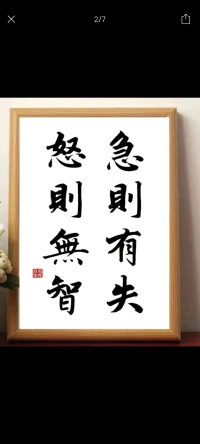 2/7
急則有失
怒則無智